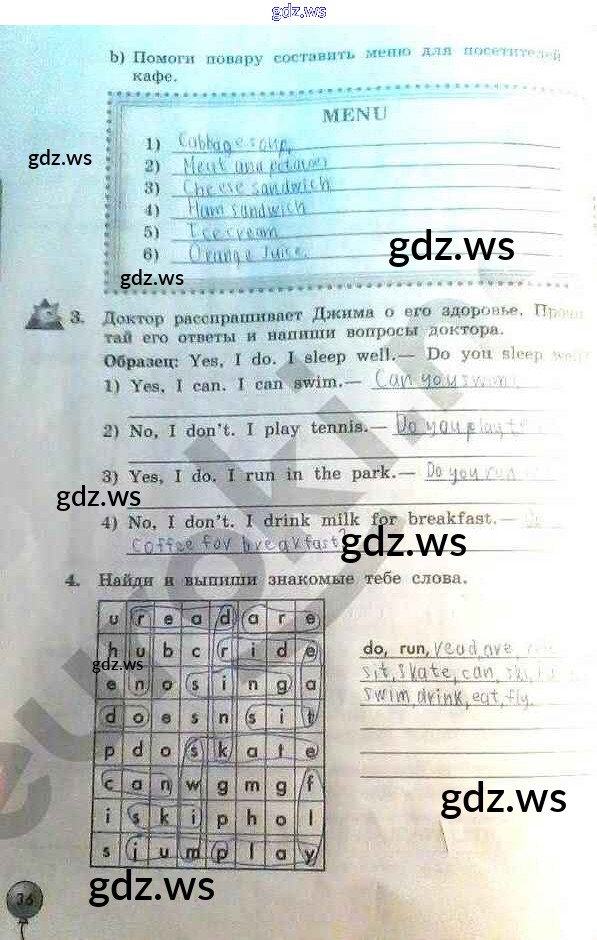 gdz.ws
b) Помоги повару составить меню для посетителей
кафе.
MENU
1) Cabbage soup,
gdz.ws
2) Meat and potatoes
3) Cheese sandwich
4) Ham sandwich
5) Icecream
gdz.ws
6) Orange Juice.
gdz.ws
3. Доктор расспрашивает Джима о его здоровье. Прочи
тай его ответы и напиши вопросы доктора.
Образец: Yes, I do. I sleep well.— Do you sleep well?
1) Yes, I can. I can swim.— Can you swim
2) No, I don't. I play tennis.— Do you play
3) Yes, I do. I run in the park.— Do you run
gdz.ws
4) No, I don't. I drink milk for breakfast.—
coffee for breakfast?
gdz.ws
4. Найди и выпиши знакомые тебе слова.
u r e a d a r e
h u b c r i d e
gdz.ws
e n o s i n g a
d o e s n s i t
p d o s k a t e
c a n w g m g f
i s k i p h o l
s j u m p l a y
do, run, read, are,
sit, skate, can, ski,
swim, drink, eat, fly.
gdz.ws
gdz.ws
36
eurokin